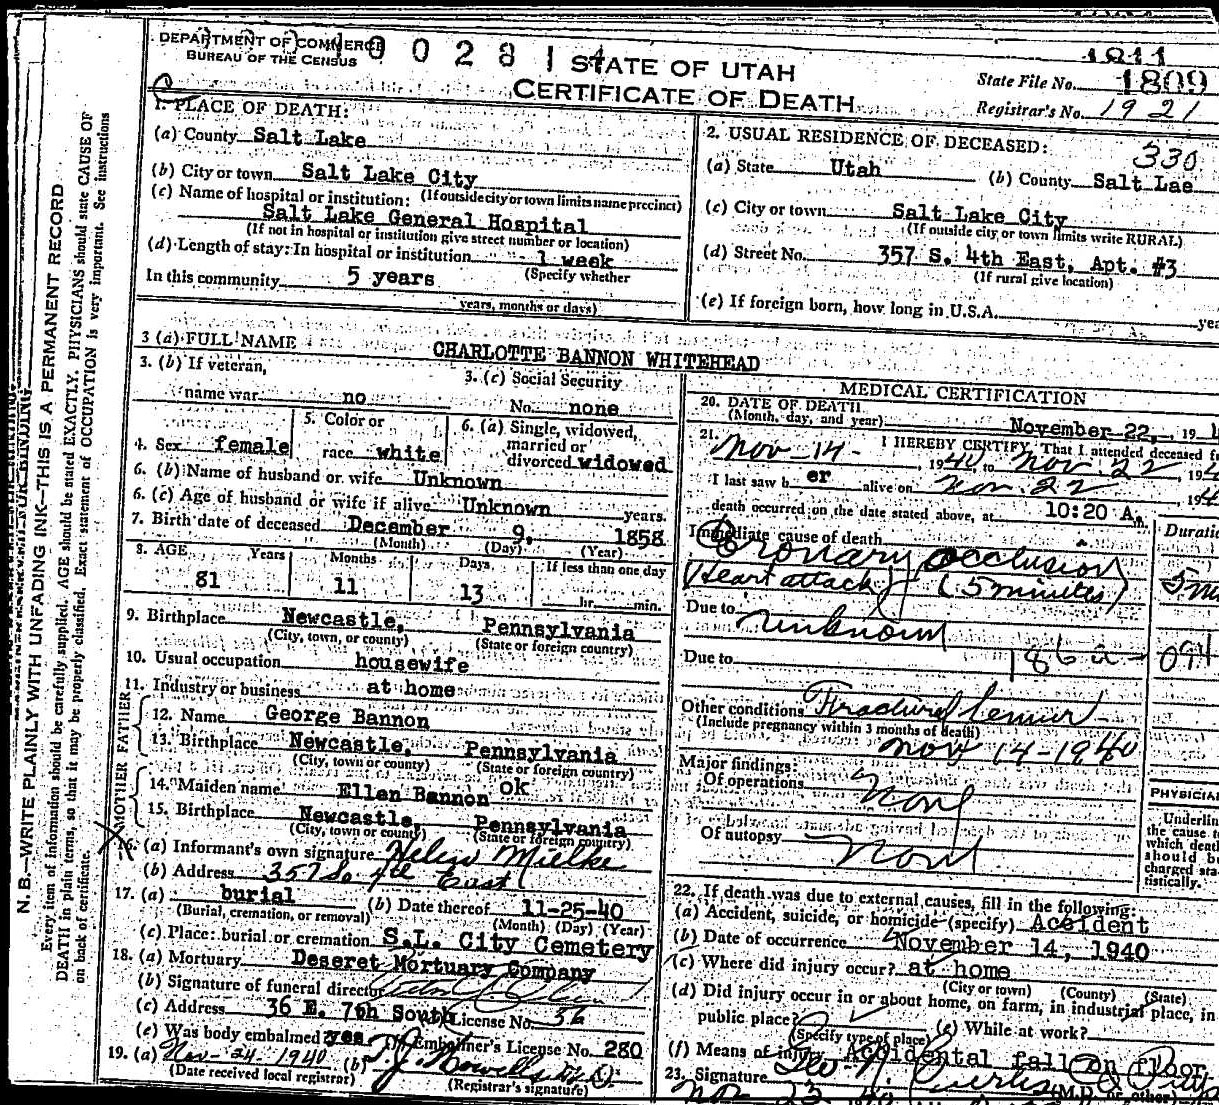 DEPARTMENT OF COMMERCE
BUREAU OF THE CENSUS
1002814
STATE OF UTAH
CERTIFICATE OF DEATH
1811
State File No. 1809
Registrar's No. 1921
1. PLACE OF DEATH:
(a) County Salt Lake
(b) City or town Salt Lake City
(If outside city or town limits name precinct)
(c) Name of hospital or institution:
Salt Lake General Hospital
(If not in hospital or institution give street number or location)
(d) Length of stay: In hospital or institution 1 week
(Specify whether
In this community 5 years
years, months or days)
2. USUAL RESIDENCE OF DECEASED:
330
(a) State Utah (b) County Salt Lae
(c) City or town Salt Lake City
(If outside city or town limits write RURAL)
(d) Street No. 357 S. 4th East, Apt. #3
(If rural give location)
(e) If foreign born, how long in U.S.A. yea
3 (a) FULL NAME CHARLOTTE BANNON WHITEHEAD
3. (b) If veteran,
name war no
3. (c) Social Security
No. none
4. Sex female
5. Color or
race white
6. (a) Single, widowed,
married or
divorced widowed
6. (b) Name of husband or wife Unknown
6. (c) Age of husband or wife if alive Unknown years.
7. Birth date of deceased December 9, 1858
(Month) (Day) (Year)
8. AGE Years Months Days If less than one day
81 11 13 hr. min.
9. Birthplace Newcastle, Pennsylvania
(City, town, or county) (State or foreign country)
10. Usual occupation housewife
11. Industry or business at home
FATHER
12. Name George Bannon
13. Birthplace Newcastle, Pennsylvania
(City, town or county) (State or foreign country)
MOTHER
14. Maiden name Ellen Bannon ok
15. Birthplace Newcastle, Pennsylvania
(City, town or county) (State or foreign country)
16. (a) Informant's own signature Helen Mielke
(b) Address 357 So 4th East
17. (a) burial (b) Date thereof 11-25-40
(Burial, cremation, or removal) (Month) (Day) (Year)
(c) Place: burial or cremation S.L. City Cemetery
18. (a) Mortuary Deseret Mortuary Company
(b) Signature of funeral director
(c) Address 36 E. 7th South License No. 36
(e) Was body embalmed? yes Embalmer's License No. 280
19. (a) Nov-24-1940 (b)
(Date received local registrar) (Registrar's signature)
MEDICAL CERTIFICATION
20. DATE OF DEATH
(Month, day, and year) November 22, 19
21. I HEREBY CERTIFY, That I attended deceased f
Nov-14- 1940 to Nov 22, 194
I last saw her alive on Nov. 22 194
death occurred on the date stated above, at 10:20 A.
Immediate cause of death Duratio
Coronary occlusion
(Heart attack) (5 minutes) 5 m
Due to Unknown
Due to 186a-094
Other conditions Fractured femur
(Include pregnancy within 3 months of death)
Nov 14-1940
Major findings:
Of operations None
Of autopsy None
PHYSICIAN
Underlin
the cause t
which deat
should b
charged sta
tistically.
22. If death was due to external causes, fill in the following:
(a) Accident, suicide, or homicide (specify) Accident
(b) Date of occurrence November 14, 1940
(c) Where did injury occur? at home
(City or town) (County) (State)
(d) Did injury occur in or about home, on farm, in industrial place, in
public place?
(Specify type of place) (e) While at work?
(f) Means of injury Accidental fall on floor
23. Signature Geo. N. Curtis (M.D. or other)
Nov 23
N. B.—WRITE PLAINLY WITH UNFADING INK—THIS IS A PERMANENT RECORD
Every item of information should be carefully supplied. AGE should be stated EXACTLY. PHYSICIANS should state CAUSE OF
DEATH in plain terms, so that it may be properly classified. Exact statement of OCCUPATION is very important. See instructions
on back of certificate.